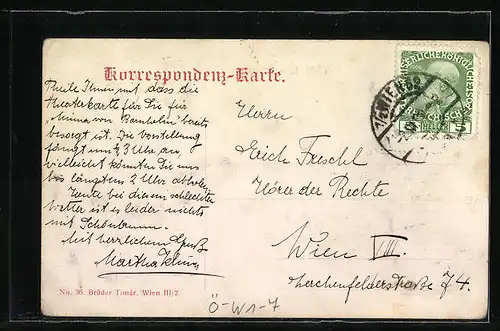 Korrespondenz-Karte.
Teile Ihnen mit dass die
Theaterkarte für Sie für
„Minna von Barnhelm" bereits
besorgt ist. Die Vorstellung
fängt um ½ 3 Uhr an,
vielleicht könnten Sie uns
bis längstens 2 Uhr abholen
Heute bei diesem schlechten
Wetter ist es leider nichts
mit Schönbrunn.
Mit herzlichem Gruß
Martha
Herrn
Erich Freschl
Hörer der Rechte
Wien VIII.
Lerchenfelderstraße 74.
WIEN
No. 36 Brüder Timár, Wien III/2
Ö-W1-7